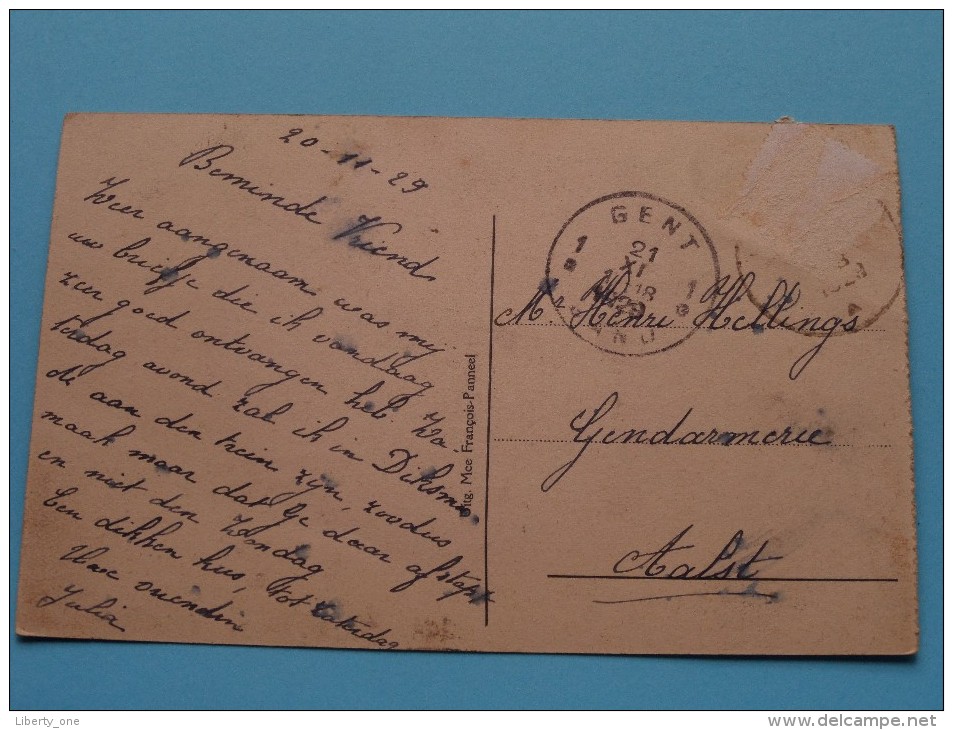 20-11-29
Beminde Vriend
Zeer aangenaam was mij
uw briefje die ik vandaag
zeer goed ontvangen heb. Za
terdag avond zal ik in Diksmui
de aan den trein zijn, zoodus
maak maar dat Ge daar afstapt
en niet den Zondag
Een dikken kus, tot Zaterdag
Uwe vriendin
Julia
Uitg. Mce François-Panneel
GENT
1 1
21
XI
18
1929
GAND
Mr Henri Hellings
Gendarmerie
Aalst
Liberty_one
www.delcampe.net